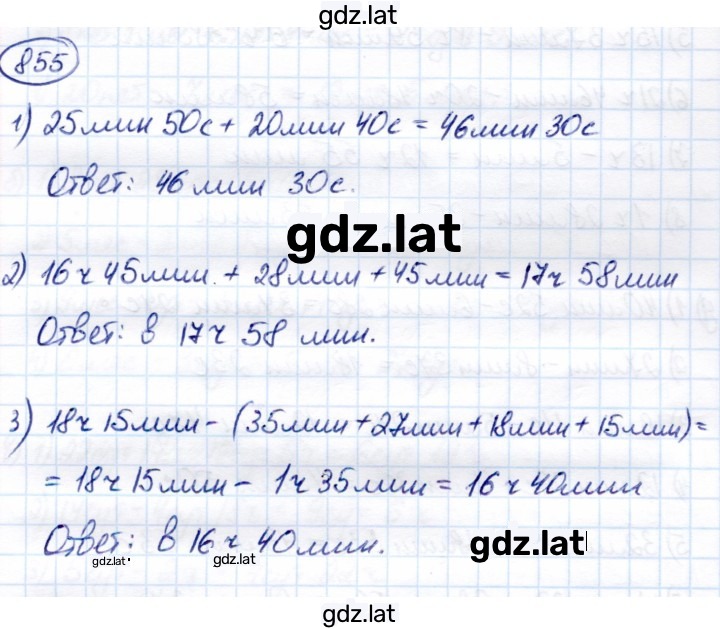 gdz.lat
855
1) 25мин 50с + 20мин 40с = 46мин 30с
Ответ: 46 мин 30с.
gdz.lat
2) 16 ч 45мин. + 28мин + 45мин = 17ч 58мин
Ответ: в 17 ч 58 мин.
3) 18ч 15мин - (35мин + 27мин + 18мин + 15мин) =
= 18ч 15мин - 1ч 35мин = 16 ч 40мин
Ответ: в 16 ч 40мин.
gdz.lat
gdz.lat
gdz.lat
gdz.lat